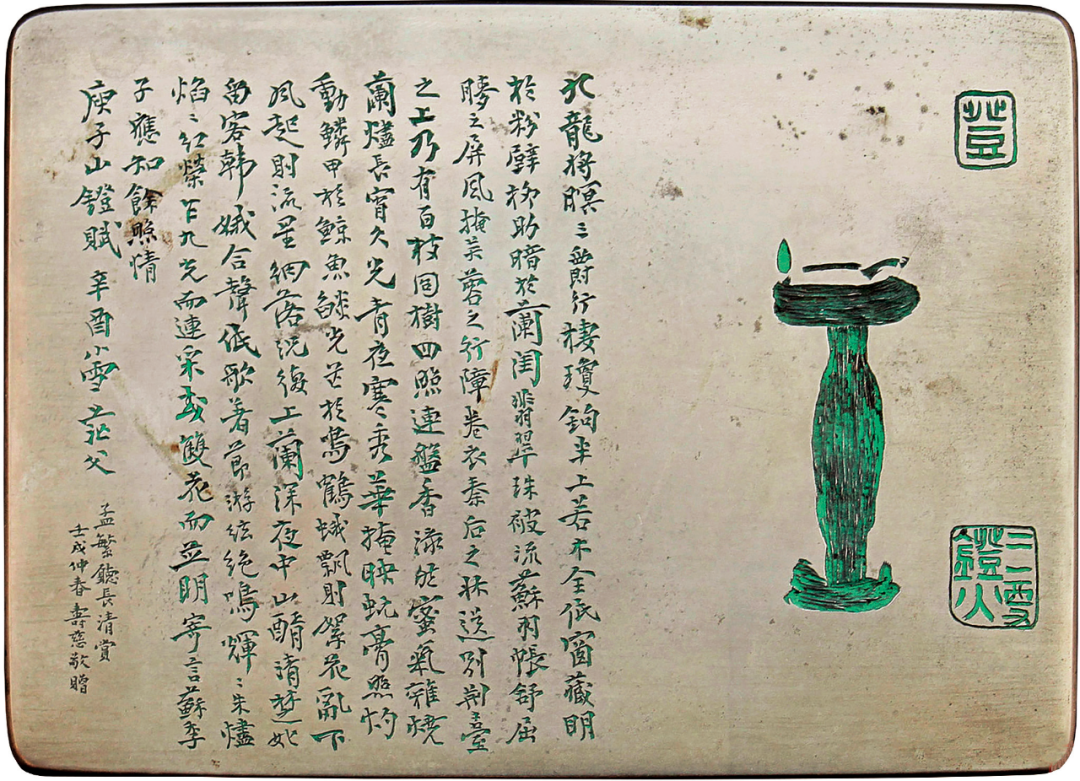 豋
鐙火
九龍將暝三爵行棲瓊鈎半上若木全低窗藏明
於粉壁柳助暗於蘭閨翡翠珠被流蘇羽帳舒屈
膝之屏風掩芙蓉之行障卷衣秦后之牀送別荊臺
之上乃有百枝同樹四照連盤香添然蜜氣雜燒
蘭燼長宵久光青夜寒秀華掩映蚖膏照灼
動鱗甲於鯨魚燄光芒於鳴鶴蛾飄則絮花亂下
風起則流星細落況復上蘭深夜中山醑清楚妃
留客韓娥合聲低歌著節游絃絕鳴輝〻朱燼
焰〻紅榮乍九光而連采或雙花而並明寄言蘇季
子應知餘照情
庾子山鐙賦 辛酉小雪茫父
孟繁廳長清賞
壬戌仲春壽慈敬贈